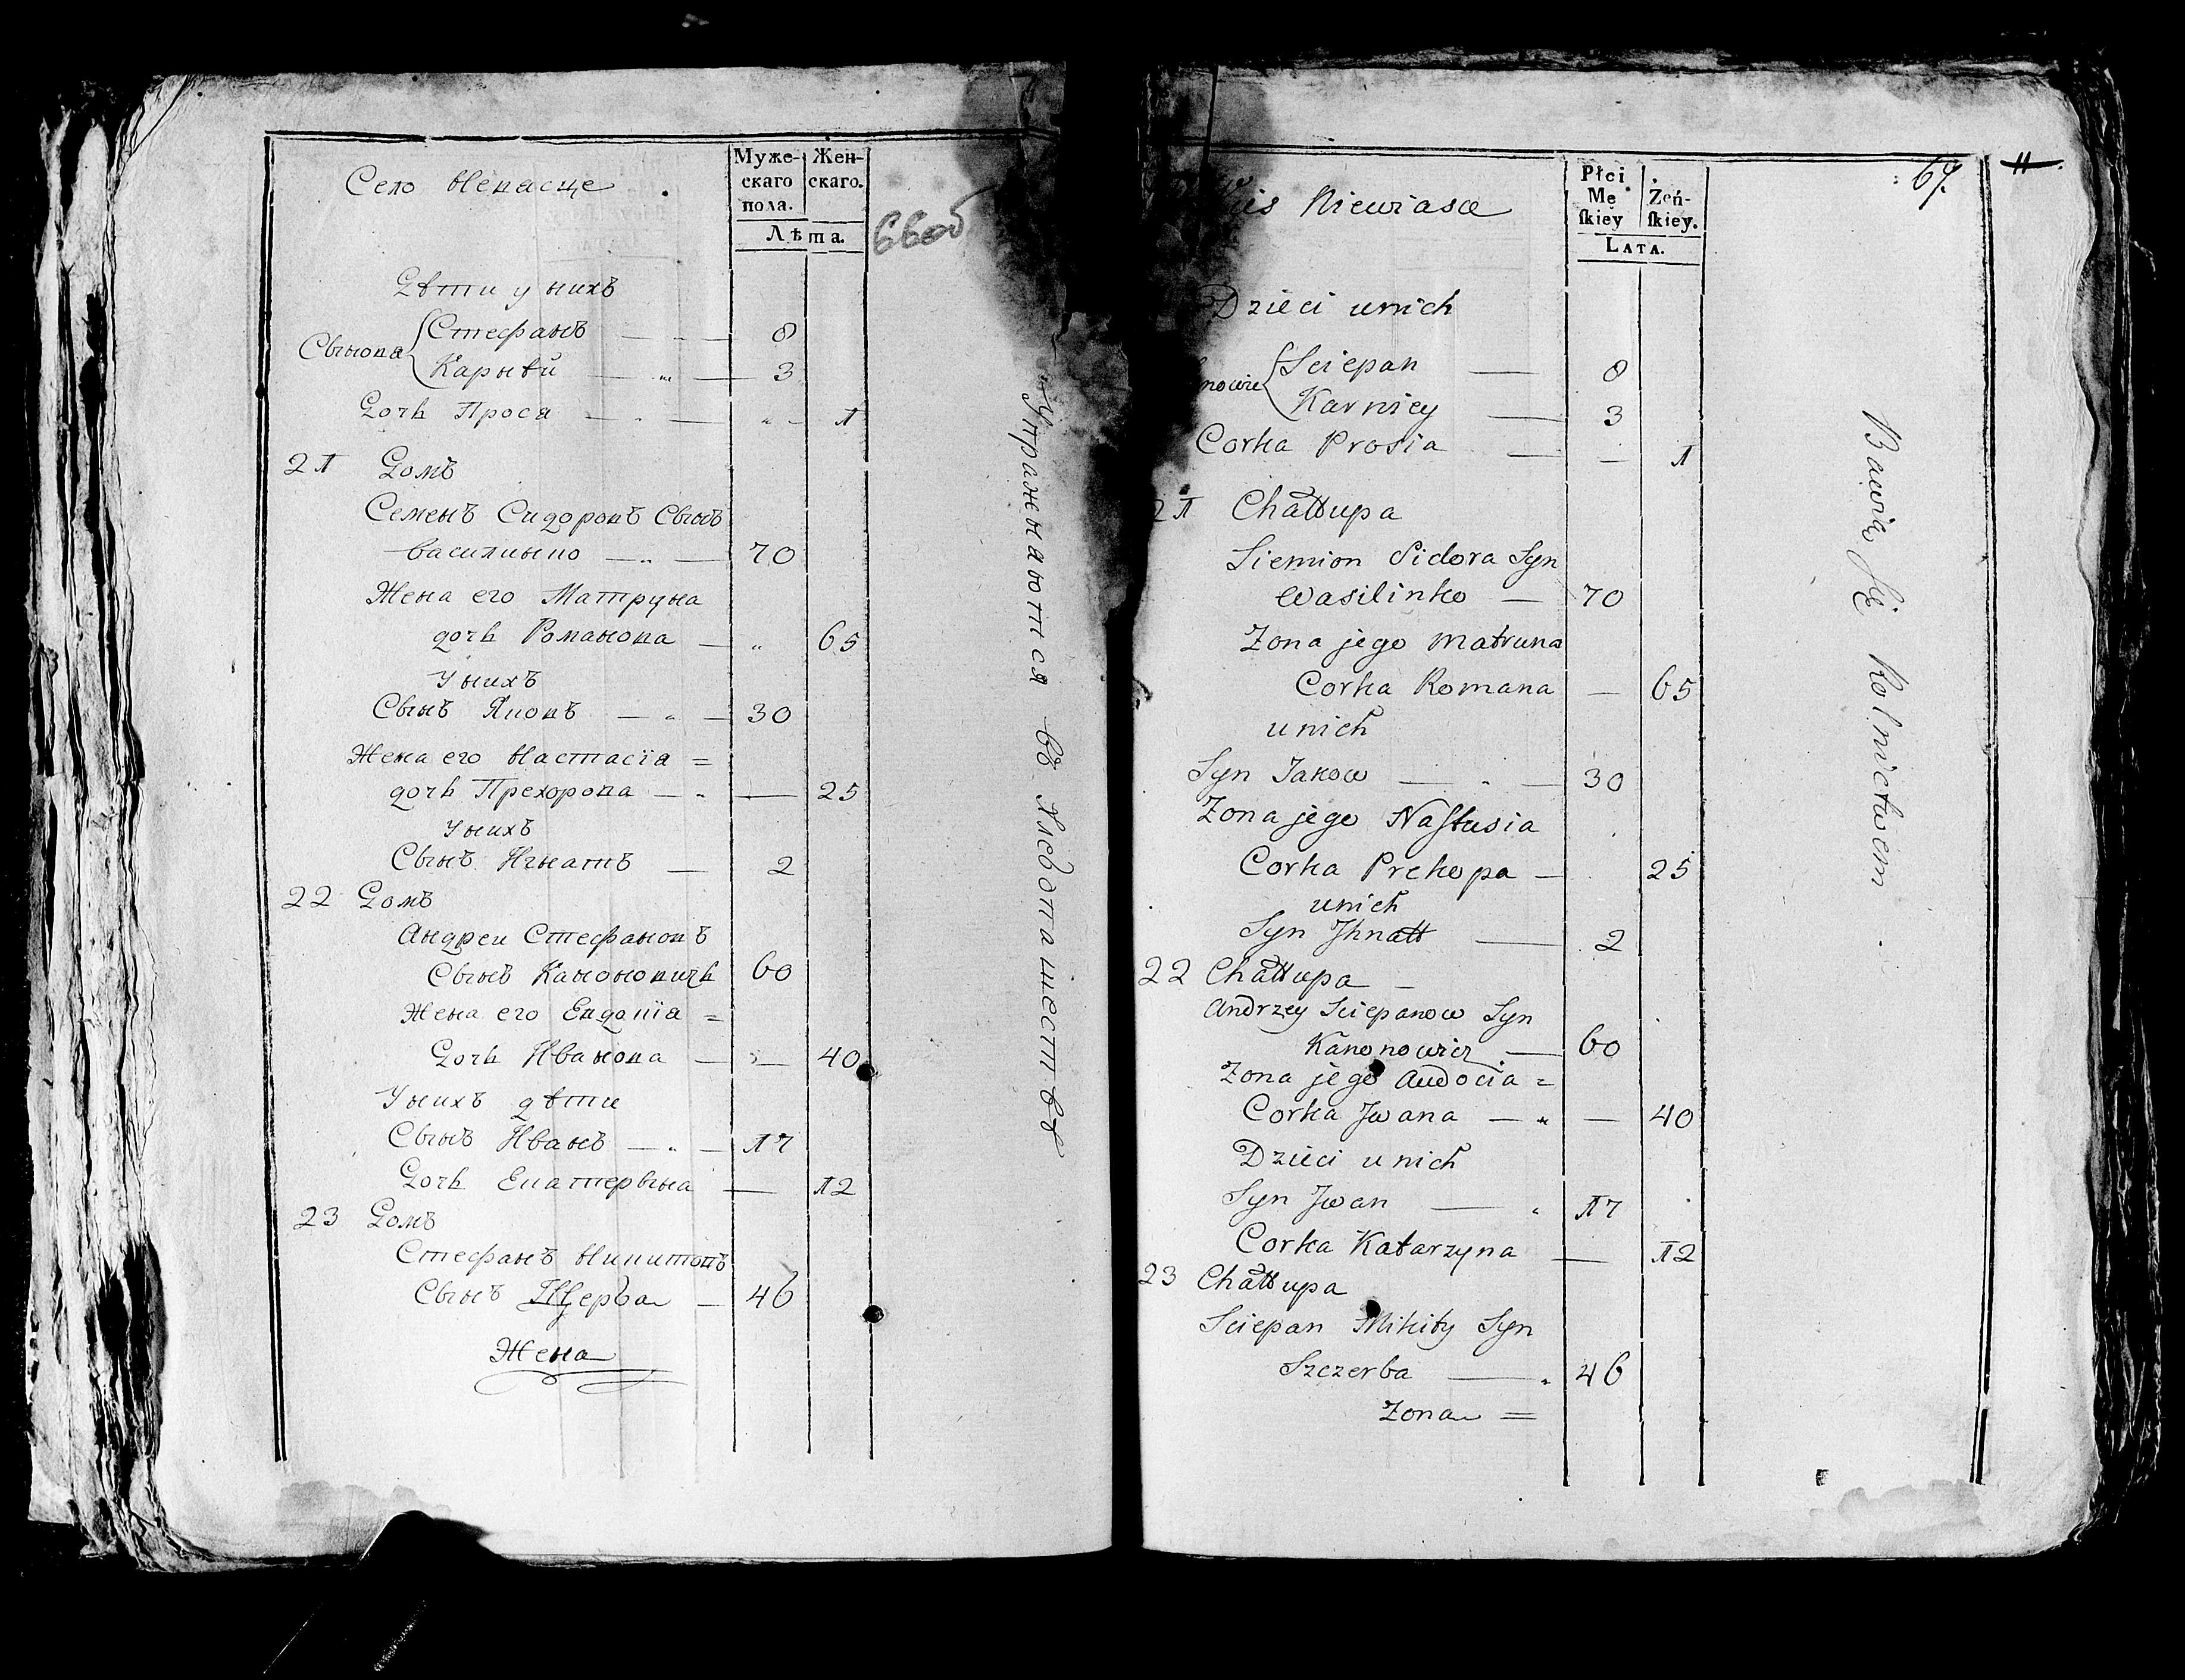 Село Невасце
Муже-
скаго
пола.
Жен-
скаго.
Лѣта.
66об
Дѣти у нихъ
Сыновя
Стефанъ — „ — 8
Карнѣй — „ — 3
Дочь Прося — „ — „ - 1
21 Домъ
Семенъ Сидоровъ Сынъ
Василинко — „ — 70
Жена его Матруна
дочь Романова — „ 65
У нихъ
Сынъ Яковъ — „ — 30
Жена его Настасіа =
дочь Прехорова — „ — 25
У нихъ
Сынъ Игнатъ — 2
22 Домъ
Андреи Стефановъ
Сынъ Канонович 60
Жена его Евдокіа =
Дочь Иванова — „ — 40
У нихъ дѣти
Сынъ Иванъ — „ — 17
Дочь Екатерына — 12
23 Домъ
Стефанъ Никитовъ
Сынъ Щерба — 46
Жена
Упражнаются въ Хлебопашествѣ
67.
11
Niewiasce
Płci
Mę
ſkiey
Żeń-
ſkiey.
LATA.
Dzieci unich
nowie
Sciepan — 8
Karniey — 3
Corka Prosia — — 1
21 Chałłupa
Siemion Sidora Syn
Wasilinko — 70
Zona jego Matruna
Corka Romana — 65
unich
Syn Jakow — „ — 30
Zona jego Naſtusia
Corka Prekopa — 25
unich
Syn Jhnatt — 2
22 Chałłupa —
Andrzey Sciepanow Syn
Kanonowicz — 60
Zona jego Audocia =
Corka Jwana — „ — 40
Dzieci unich
Syn Jwan — „ 17
Corka Katarzyna — 12
23 Chałłupa
Sciepan Mikity Syn
Szczerba — „ 46
Zona =
Bawią ſię Rolnictwem